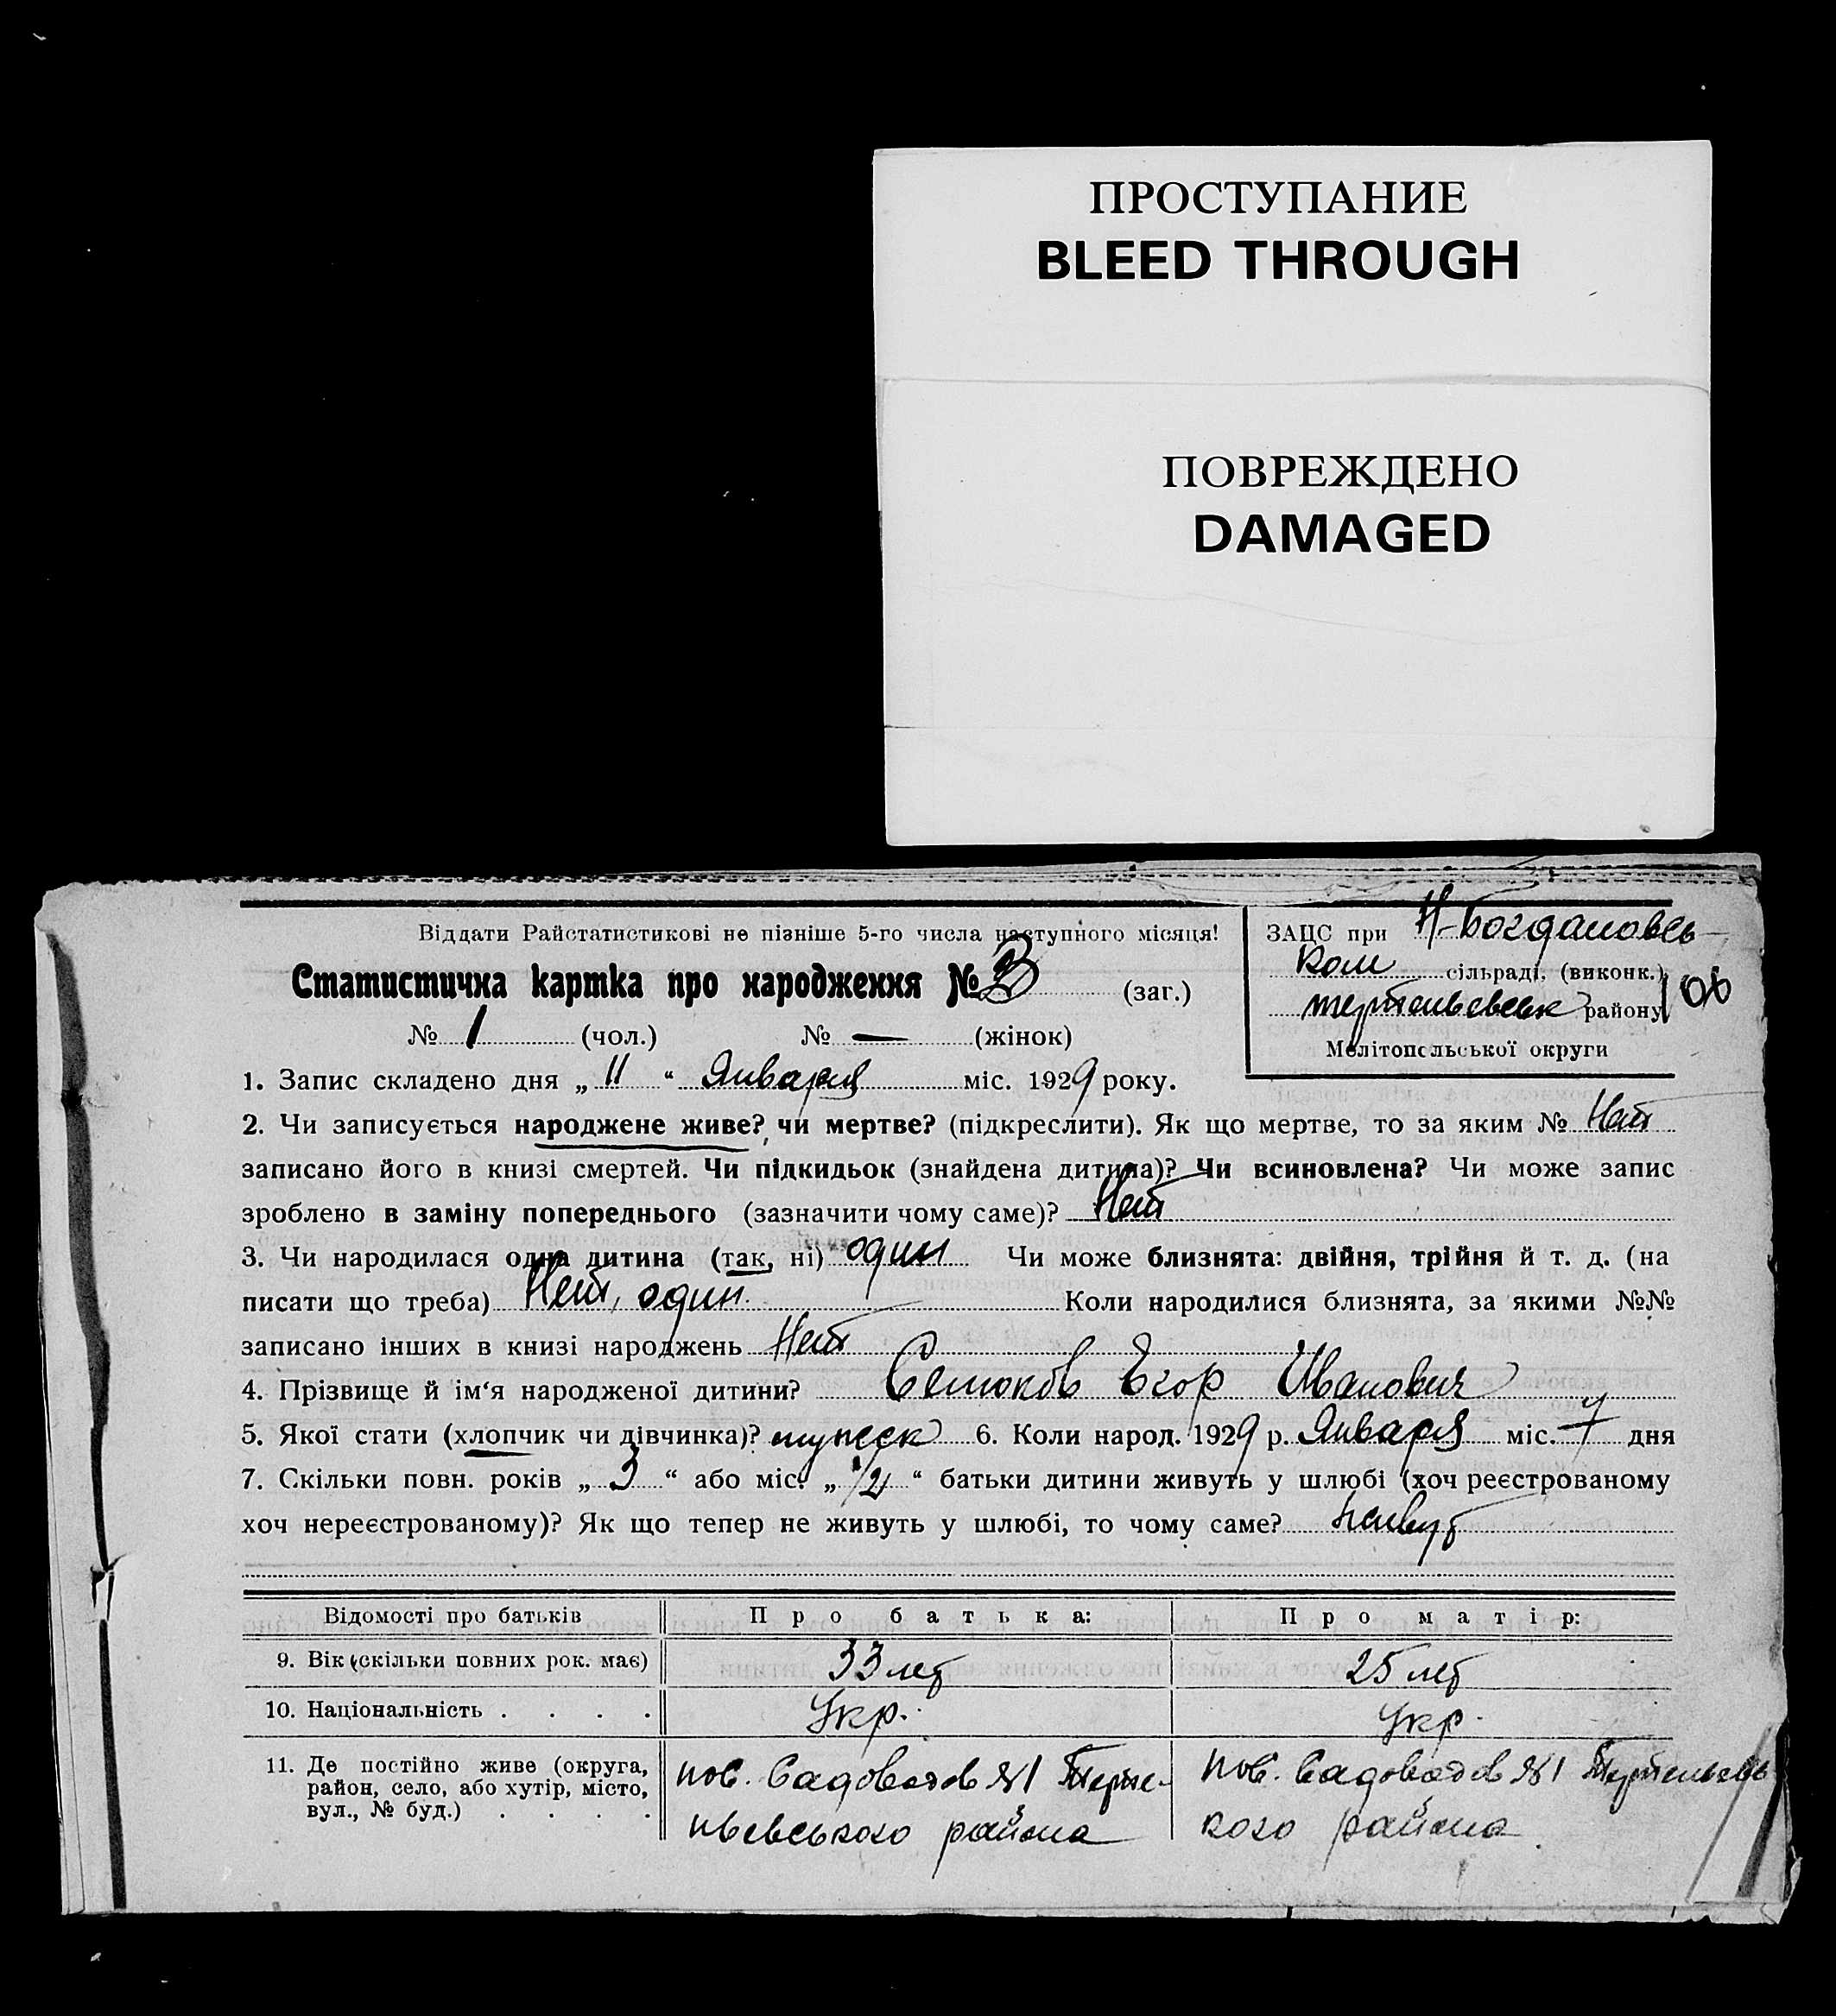 ПРОСТУПАНИЕ
BLEED THROUGH
ПОВРЕЖДЕНО
DAMAGED
Віддати Райстатистикові не пізніше 5-го числа наступного місяця!
Статистична картка про народження № 3 (заг.)
№ 1 (чол.) № — (жінок)
ЗАЦС при Н-Богдановсь-
ком сільраді, (виконк.)
района району
106
Мелітопольської округи
1. Запис складено дня „ 11 “ Января міс. 1929 року.
2. Чи записується народжене живе? чи мертве? (підкреслити). Як що мертве, то за яким № Нет
записано його в книзі смертей. Чи підкидьок (знайдена дитина)? Чи всиновлена? Чи може запис
зроблено в заміну попереднього (зазначити чому саме)? Нет
3. Чи народилася одна дитина (так, ні) один Чи може близнята: двійня, трійня й т. д. (на
писати що треба) Нет, один. Коли народилися близнята, за якими №№
записано інших в книзі народжень Нет
4. Прізвище й ім‘я народженої дитини? Егор Иванович
5. Якої стати (хлопчик чи дівчинка)? мужск 6. Коли народ. 1929 р. Января міс. 7 дня
7. Скільки повн. років „ 3 “ або міс. „ “ батьки дитини живуть у шлюбі (хоч реєстрованому
хоч нереєстрованому)? Як що тепер не живуть у шлюбі, то чому саме? живут
Відомості про батьків Про батька: Про матір:
9. Вік (скільки повних рок. має) 33 лет 25 лет
10. Національність . . . . Укр. Укр.
11. Де постійно живе (округа,
район, село, або хутір, місто,
вул., № буд.) . . . .
пос. Садоводов №1 Терпе-
ньевського района
пос. Садоводов №1 Терпеньевсь
кого района